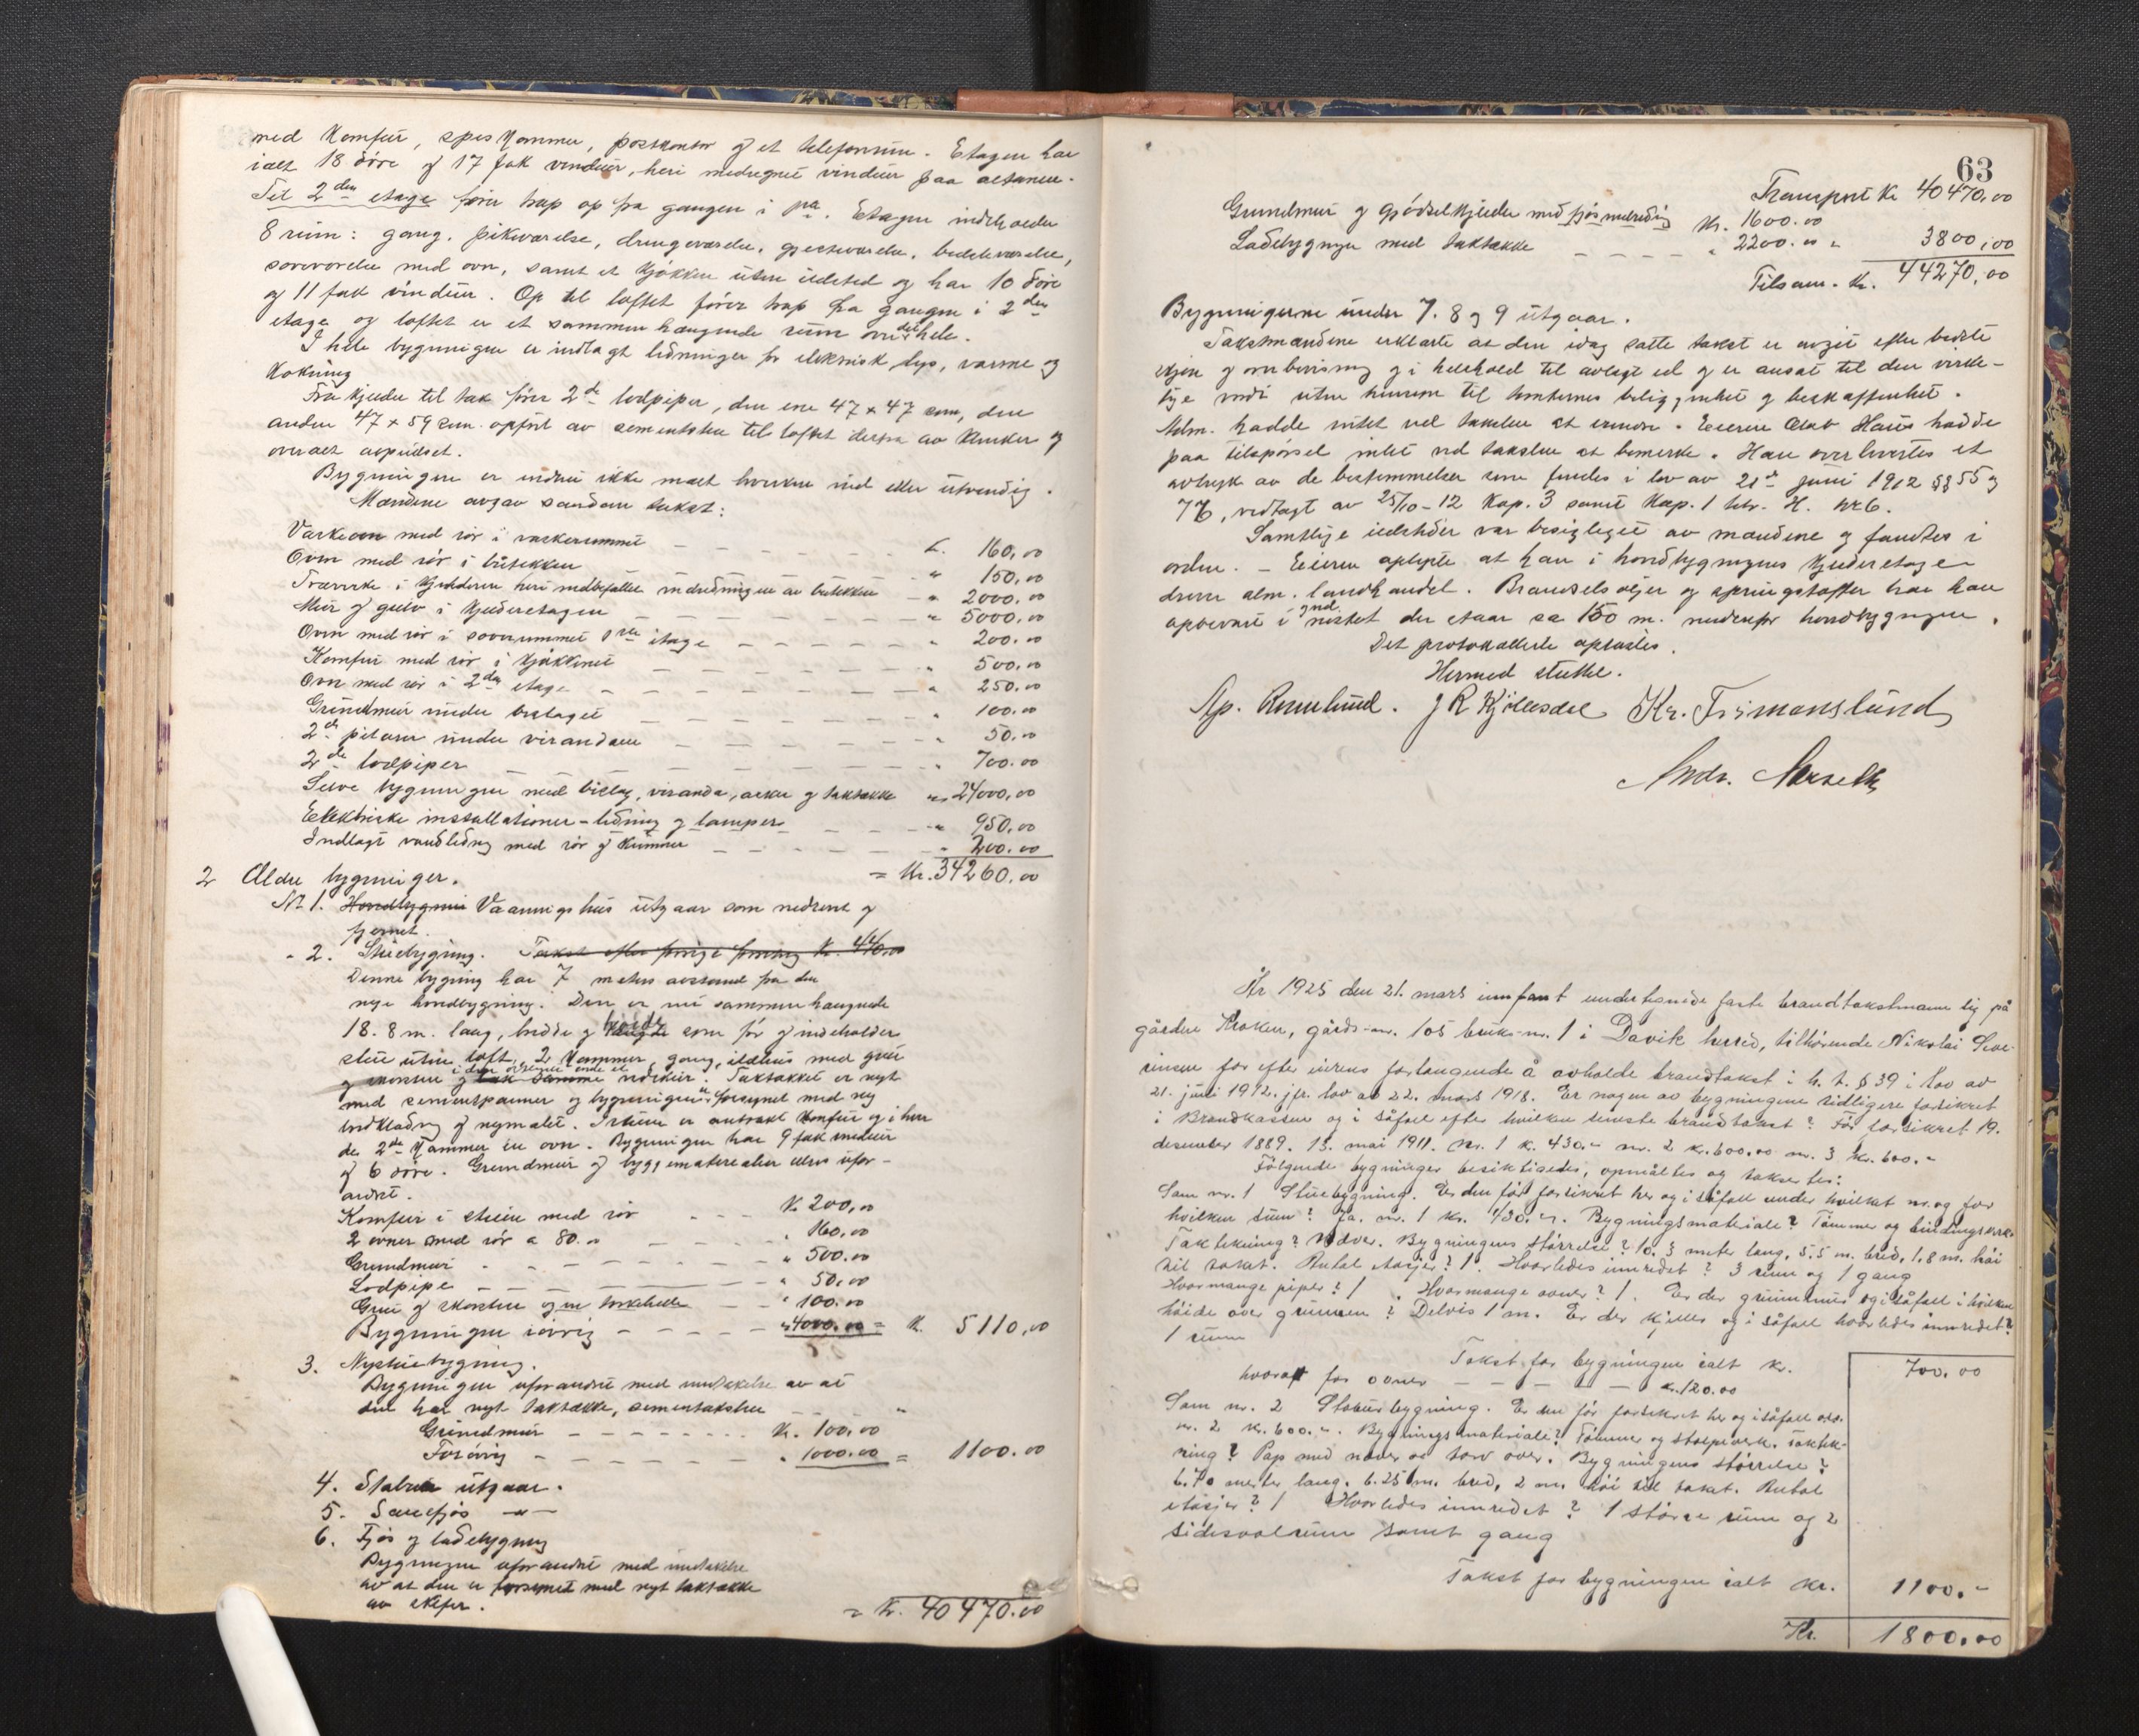 med Komfur, spiskammer, postkontor og et telefonrum. Etagen har
ialt 18 döre og 17 fak vinduer, heri medregnet vinduer paa altanen.
Til 2den etage förer trap op fra gangen i 1ste. Etagen indeholder
8 rum: gang, pikeværelse, drengeværelse, gjesteværelse, bedsteværelse,
soveværelse med ovn, samt et kjökken uten ildsted og har 10 döre
og 11 fak vinduer. Op til loftet förer trap fra gangen i 2den
etage og loftet er et sammenhængende rum over det hele.
I hele bygningen er indlagt ledninger for elektrisk lys, varme og
kokning
Fra kjelder til tak förer 2de lodpiper, den ene 47 x 47 cm, den
anden 47 x 59 cm. opfört av sementsten til loftet derfra av klinker og
overalt avpudset.
Bygningen er endnu ikke malt hverken ind eller utvendig.
Mændene avgav saadan takst:
Vaskeovn med rör i vaskerummet — Kr. 160,00
Ovn med rör i butikken " 150,00
Træverke i kjelderen heri medbefattet indredningen av butikken — " 2000.00
Mur og gulv i kjelderetagen " 5000,00
Ovn med rör i soverummet 1ste etage — " 200.00
Komfur med rör i kjökkenet " 500.00
Ovn med rör i 2den etage — " 250.00
Grundmur under bislaget — " 100.00
2de pilarer under verandaen — " 50.00
2de lodpiper — " 700.00
Selve bygningen med bislag, veranda, arker og taktække " 24000,00
Elektriske installationer - ledning og lamper — " 950.00
Indlagt vandledning med rör og kummer — " 200.00
= Kr. 34260.00
2 Ældre bygninger.
Nr 1. Hovedbygning Vaaningshus utgaar som nedrevet og
fjernet.
- 2. Stuebygning. Takst efter forrige forretning Kr. 440.00
Denne bygning har 7 meters avstand fra den
nye hovedbygning. Den er nu sammenhængende
18.8 m. lang, bredde og høide som för og indeholder
stue uten loft, 2 kammer, gang, ildhus med grue
og skorsten og i den ene ende et vedskur. Taktækket er nyt
med sementpanner og bygningen forsynet med ny
bordklædning og nymalet. I stuen er anbrakt komfur og i hver
de 2de kammer en ovn. Bygningen har 9 fak vinduer
og 6 döre. Grundmur og byggematerialer ellers ufor-
andret.
Komfur i stuen med rör — Kr. 200,00
2 ovner med rör a 80.00 — " 160,00
Grundmur — " 500.00
Lodpipe — " 50,00
Grue og skorsten og en takhelle — " 100.00
Bygningen iövrig — " 4000.00 = Kr. 5110,00
3. Nystuebygning.
Bygningen uforandret med undtakelse av at
den har nyt taktække, sementaksten
Grundmur — Kr. 100,00
Forövrig — " 1000.00 = 1100.00
4. Stabur utgaar.
5. Sauefjös —"—
6. Fjös og ladebygning
Bygningen uforandret med undtakelse
av at den er forsynet med nyt taktække
av skifer.
= Kr. 40470.00
63
Transport Kr 40470,00
Grundmur og gjödselkjelder med fjösindredning Kr. 1600.00
Ladebygningen med taktække — " 2200.00 = 3800,00
Tilsam. Kr. 44270,00
Bygningerne under 7. 8 og 9 utgaar.
Takstmændene erklærte at den idag satte takst er avgit efter bedste
skjön og overbevisning og i henhold til avlagt ed og er ansat til den virke-
lige verdi uten hensyn til tomternes beliggenhet og beskaffenhet.
Mdm. hadde intet ved taksten at erindre. Eieren Olav Haus hadde
paa tilspörsel intet ved taksten at bemerke. Han overlevertes et
avtryk av de bestemmelser som findes i lov av 21de juni 1912 §§ 55 og
76, vedtægt av 25/10-12 Kap. 3 samt Kap. 1 litr. H. nr 6.
Samtlige ildsteder var besigtiget av mændene og fandtes i
orden. — Eieren oplyste at han i hovedbygningens kjelderetage
driver alm. landhandel. Brændselsoljer og springstoffer har han
opbevart i nd nöstet der staar ca 150 m. nedenfor hovedbygningen.
Det protokollerte oplæstes.
Hermed sluttet.
Ap. Rennlund. J R Kjölesdal Kr. Frimanslund
Andr. Marselk
År 1925 den 21. mars innfant undertegnede faste brandtakstmann sig på
gården Kroken, gårds-nr. 105 bruks-nr. 1 i Davik herred, tilhörende Nikolai Seve-
rinsen for efter eierens forlangende å avholde brandtakst i h. t. § 39 i lov av
21. juni 1912. jfr. lov av 22. mars 1918. Er nogen av bygningene tidligere forsikret
i Brandkassen og i såfall efter hvilken seneste brandtakst? Før forsikret 19.
desember 1889. 13. mai 1911. Nr. 1 k. 430.- nr. 2 kr. 600.00 nr. 3 kr. 600.-
Følgende bygninger besiktigedes, opmåltes og takstertes:
Som nr. 1 Stuebygning. Er den før forsikret her og i såfall under hvilket nr. og for
hvilken sum? Ja. nr. 1 kr. 430.-. Bygningsmateriale? Tømmer og bindingsverk.
Taktekning? Never. Bygningens størrelse? 10.3 meter lang, 5.5 m. bred, 1.8 m. høi
til taket. Antal etasjer? 1. Hvorledes innredet? 3 rum og 1 gang
Hvormange piper? 1. Hvormange ovner? 1. Er der grunnmur og i såfall i hvilken
høide over grunnen? Delvis 1 m. Er der kjeller og i såfall hvorledes innredet?
1 rum
Takst for bygningen ialt kr. 700.00
hvorav for ovner — kr. 120.00
Som nr. 2 Staburbygning. Er den før forsikret her og i såfall osv.
nr. 2 kr. 600.-. Bygningsmateriale? Tømmer og stolpeverk. Taktek-
ning? Pap med never og torv over. Bygningens størrelse?
6.70 meter lang. 6.25 m. bred, 2 m. høi til taket. Antal
etasjer? 1 Hvorledes innredet? 1 større rum og 2
sidesvalrum samt gang
Takst for bygningen ialt kr. 1100.-
Kr. 1800.00